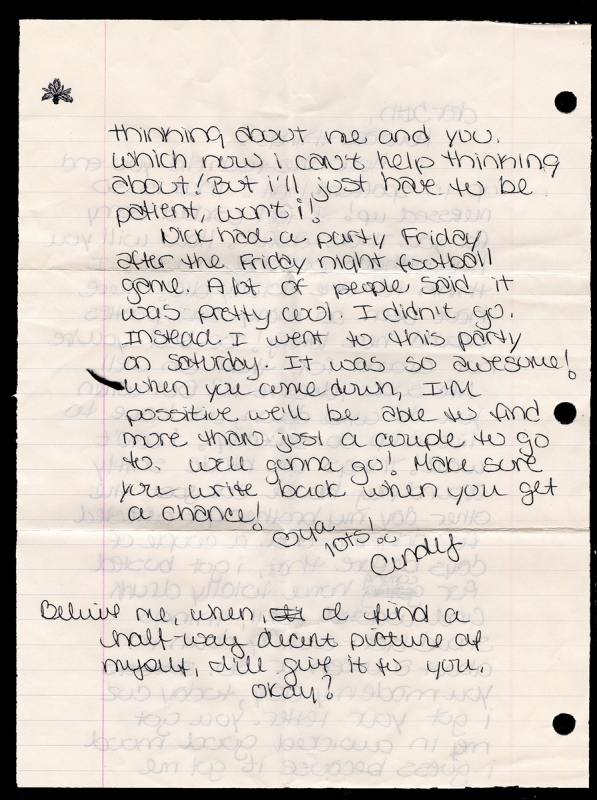 thinking about me and you.
which now i can't help thinking
about! But i'll just have to be
patient, won't i!
Nick had a party Friday
after the Friday night football
game. A lot of people said it
was pretty cool. I didn't go.
Instead I went to this party
on Saturday. It was so awesome!
when you come down, I'm
possitive we'll be able to find
more than just a couple to go
to. well gonna go! Make sure
you write back when you get
a chance!
ya
lots!
Cindy
Believe me, when I find a
half-way decent picture of
myself, I'll give it to you.
okay?